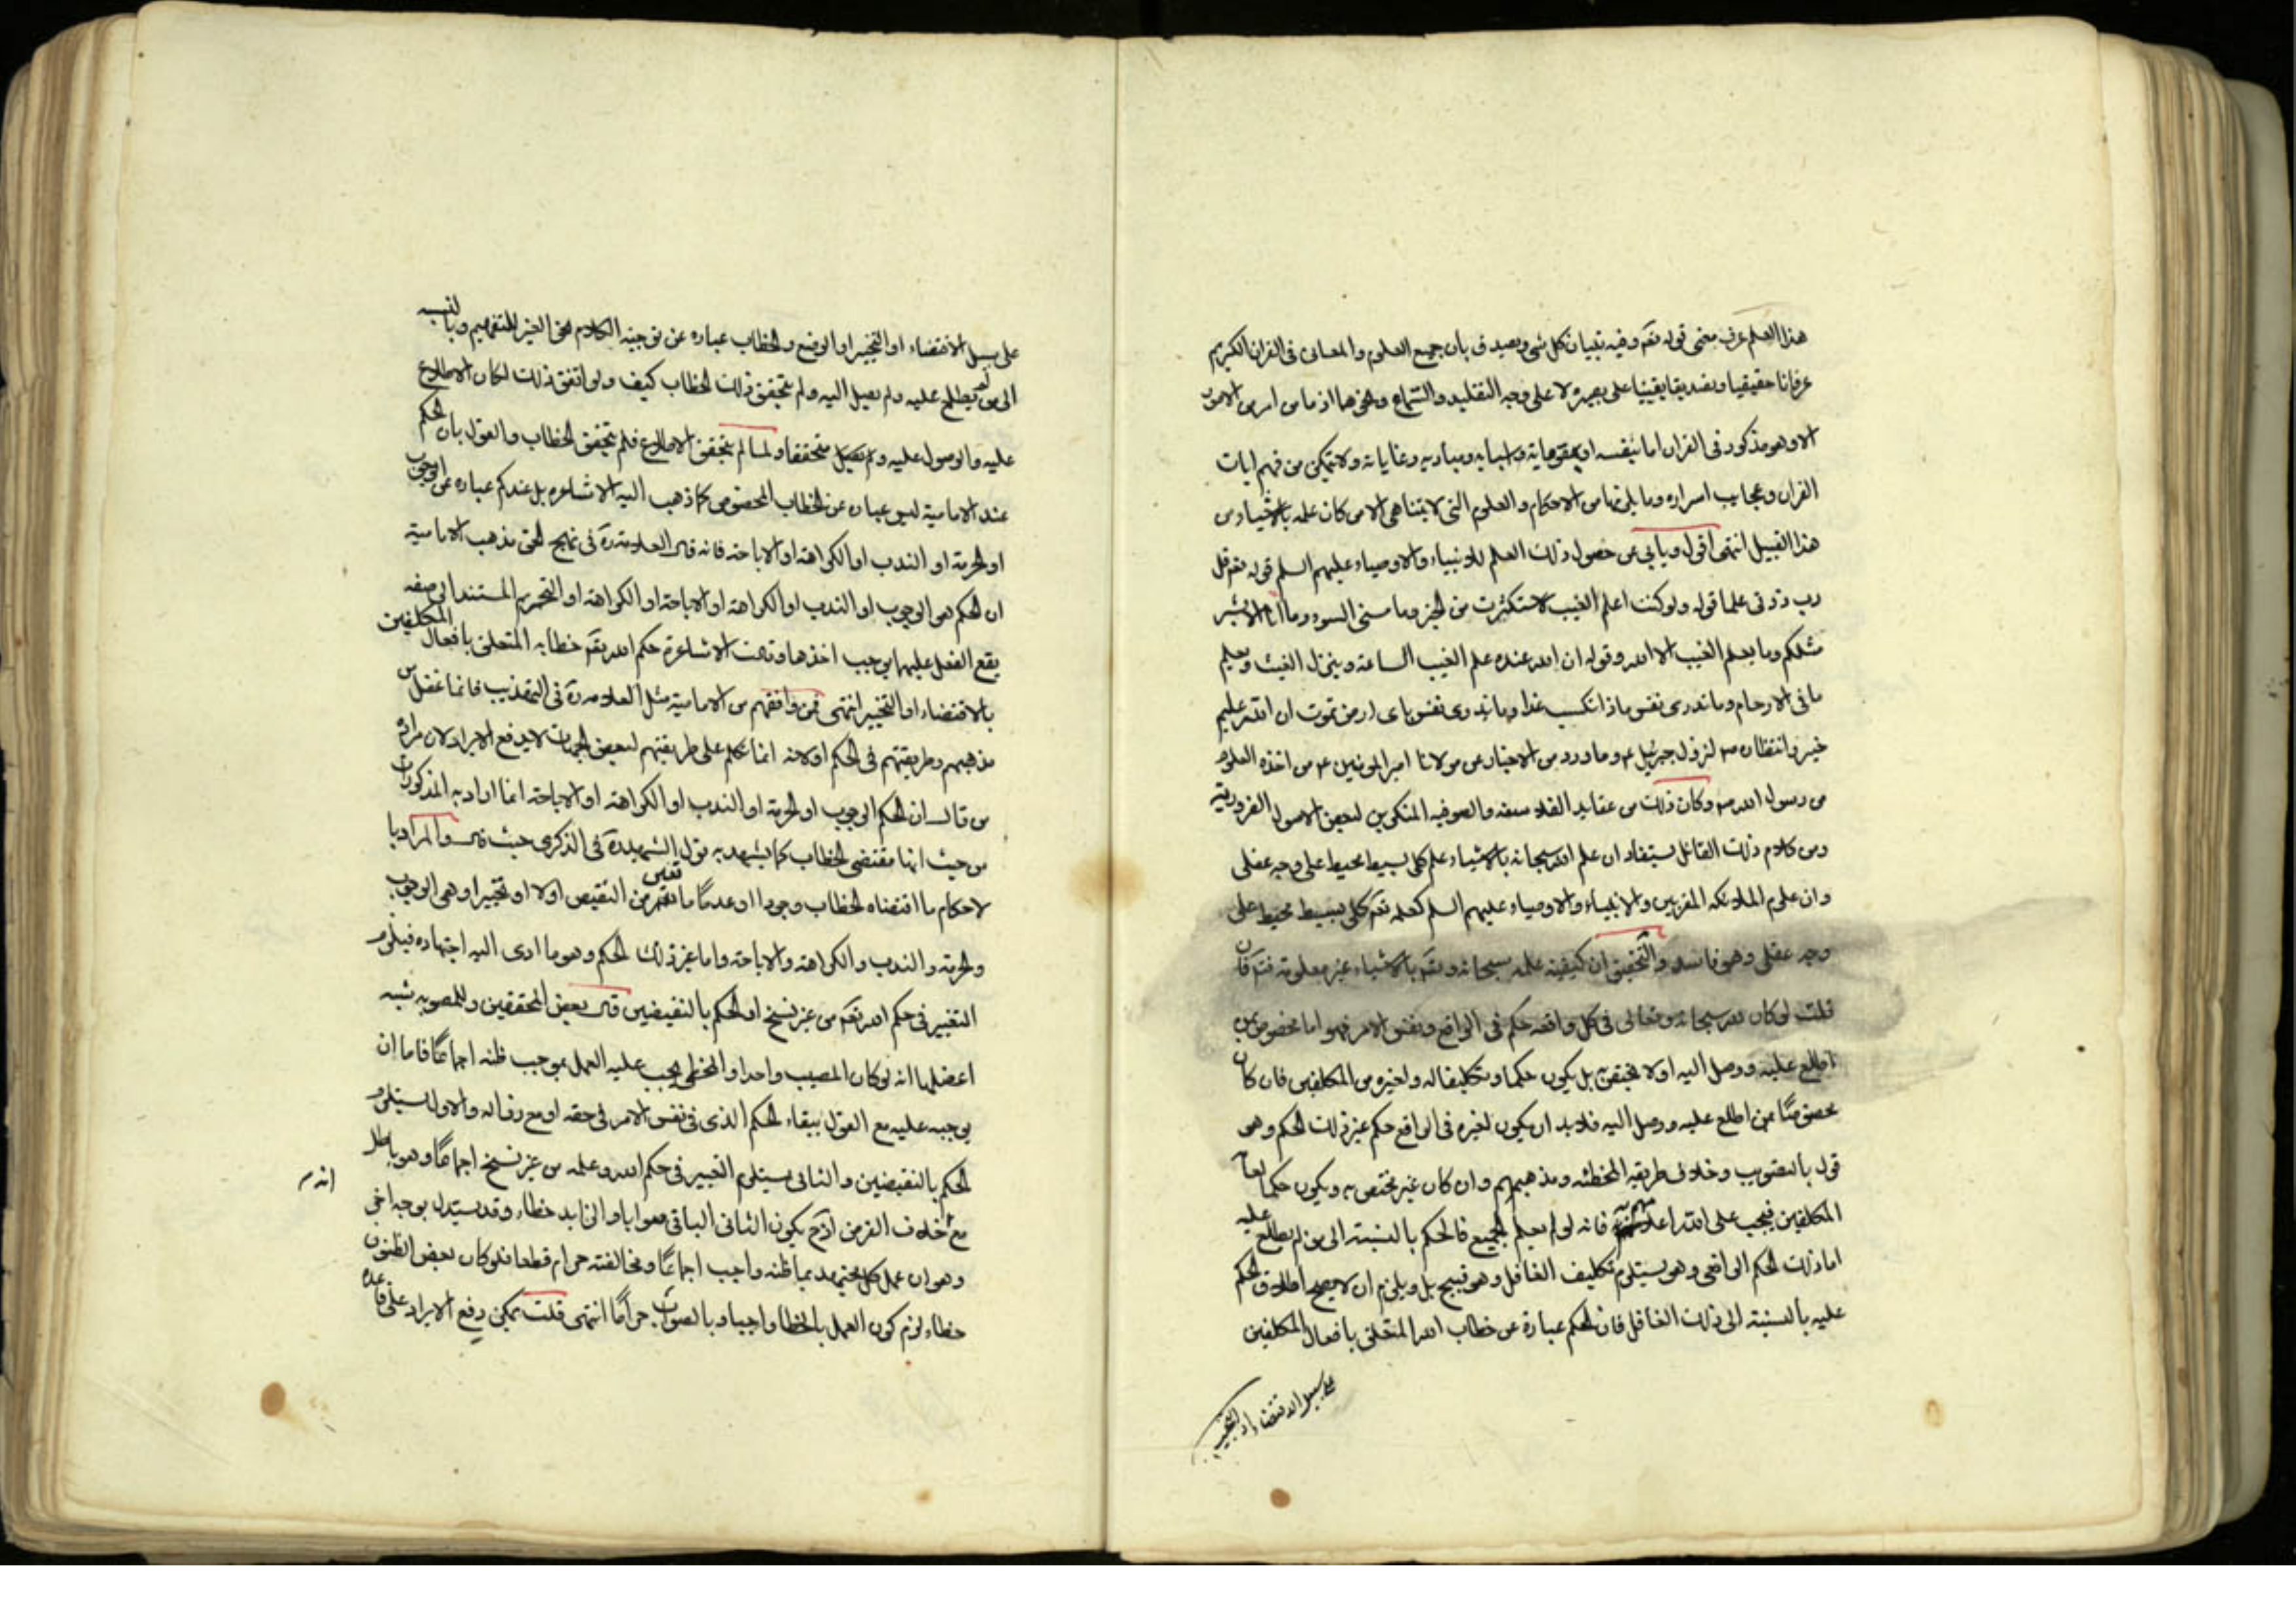 هذا العلم عرف معنى قوله تعم وفيه تبيان كل شى ويصدق بان جميع العلوم والمعانى فى القران الكريم
عرفانا حقيقيا وتصديقا يقينيا على بصيرة لا على وجه التقليد والسماع ونحوهما اذ ما من امر من الامور
الا وهو مذكور فى القران اما بنفسه او بمقوماته واسبابه ومباديه وغاياته ولا يتمكن من فهم ايات
القران وعجايب اسراره وما يلزمها من الاحكام والعلوم التى لا يتناهى الا من كان علمه بالاشياء من
هذا القبيل انتهى اقول ويابى عن حصول ذلك العلم للانبياء والاوصياء عليهم السلم قوله تعم قل
رب زدنى علما قوله ولو كنت اعلم الغيب لاستكثرت من الخير وما مسنى السوء وما انا الا بشر
مثلكم وما يعلم الغيب الا الله وقوله ان الله عنده علم الغيب الساعة وينزل الغيث ويعلم
ما فى الارحام وما تدرى نفس ماذا تكسب غدا وما تدرى نفس باى ارض تموت ان الله عليم
خبير وانتظاره ص لنزول جبرئيل ع وما ورد من الاخبار عن مولانا امير المومنين ع من اخذه العلوم
من رسول الله ص وكان ذلك من عقايد الفلاسفه والصوفيه المنكرين لبعض الاصول الضروريه
ومن كلام ذلك القائل يستفاد ان علم الله سبحانه بالاشياء علم كلى بسيط محيط على وجه عقلى
وان علوم الملائكه المقربين والانبياء والاوصياء عليهم السلم كعلمه تعم كلى بسيط محيط على
وجه عقلى وهو فاسد والتحقيق ان كيفية علمه سبحانه وتعم بالاشياء غير معلومة فتم فان
قلت لو كان لله سبحانه وتعالى فى كل واقعه حكم فى الواقع ونفس الامر فهو اما مخصوص بمن
اطلع عليه ووصل اليه او لا يختص بل يكون حكما وتكليفا له ولغيره من المكلفين فان كان
مخصوصا بمن اطلع عليه ووصل اليه فلابد ان يكون لغيره فى الواقع حكم غير ذلك الحكم وهو
قول بالتصويب وخلاف طريقه المخطئه ومذهبهم وان كان غير مختص به ويكون حكما لعامة
المكلفين فيجب على الله اعلامهم به فانه لو لم يعلم الجميع فالحكم بالنسبة الى من لم يطلع عليه
اما ذلك الحكم الواقعى وهو يستلزم تكليف الغافل وهو قبيح بل ويلزم ان لا يصح اطلاق الحكم
عليه بالنسبة الى ذلك الغافل فان الحكم عبارة عن خطاب الله المتعلق بافعال المكلفين
على سبيل الاقتضاء او التخيير
على سبيل الاقتضاء او التخيير او الوضع والخطاب عباره عن توجيه الكلام نحو الغير للتفهيم وبالنسبه
الى من لم يطلع عليه ولم يصل اليه ولم يتحقق ذلك الخطاب كيف ولو اتفق ذلك لكان الاطلاع
عليه والوصول عليه ولم يصل متحققا ولما لم يتحقق الاطلاع فلم يتحقق الخطاب والقول بان الحكم
عند الامامية ليس عباره عن الخطاب المخصوص كما ذهب اليه الاشاعره بل عندكم عباره عن الوجوب
او الحرمة او الندب او الكراهة او الاباحة فانه قال العلامة ره فى نهج الحق مذهب الامامية
ان الحكم هو الوجوب او الندب او الكراهة او الاباحة او الكراهة او التحريم المستند الى صفه
يقع الفعل عليها يوجب اخذها وقالت الاشاعرة حكم الله تعم خطابه المتعلق بافعال المكلفين
بالاقتضاء او التخيير انتهى فمن وافقهم من الامامية مثل العلامه ره فى التهذيب فانما غفل من
مذهبهم وطريقتهم فى الحكم او لانه انما تكلم على طريقتهم لبعض الجهات لا يدفع الايراد لان مراد
من قال ان الحكم الوجوب او الحرمة او الندب او الكراهة او الاباحة انما اراد به المذكورات
من حيث انها مقتضى الخطاب كما يشهد به قول الشهيد ره فى الذكرى حيث قال والمراد با
لاحكام ما اقتضاه الخطاب وجودا او عدما مانعين من النقيض اولا او تخييرا وهى الوجوب
والحرمة والندب والكراهة والاباحة واما غير ذلك الحكم وهو ما ادى اليه اجتهاده فيلزم
التغيير فى حكم الله تعم من غير نسخ او الحكم بالنقيضين قال بعض المحققين وللمصوبه شبه
اعضلها انه لو كان المصيب واحدا والمخطى يجب عليه العمل بموجب ظنه اجماعا فاما ان
يوجبه عليه مع القول ببقاء الحكم الذى فى نفس الامر فى حقه او مع زواله والاول يستلزم
الحكم بالنقيضين والثانى يستلزم التغيير فى حكم الله وعلمه من غير نسخ اجماعا وهو باطل
انه
مع خلاف الفرض اذ ح يكون الثانى الباقى صوابا والزايد خطاء وقد يستدل بوجه اخر
وهو ان عمل كل مجتهد بما ظنه واجب اجماعا ومخالفته حرام قطعا فلو كان بعض الظنون
خطاء لزم كون العمل بالخطا واجبا وبالصواب حراما انتهى قلت يمكن دفع الايراد على قاعده